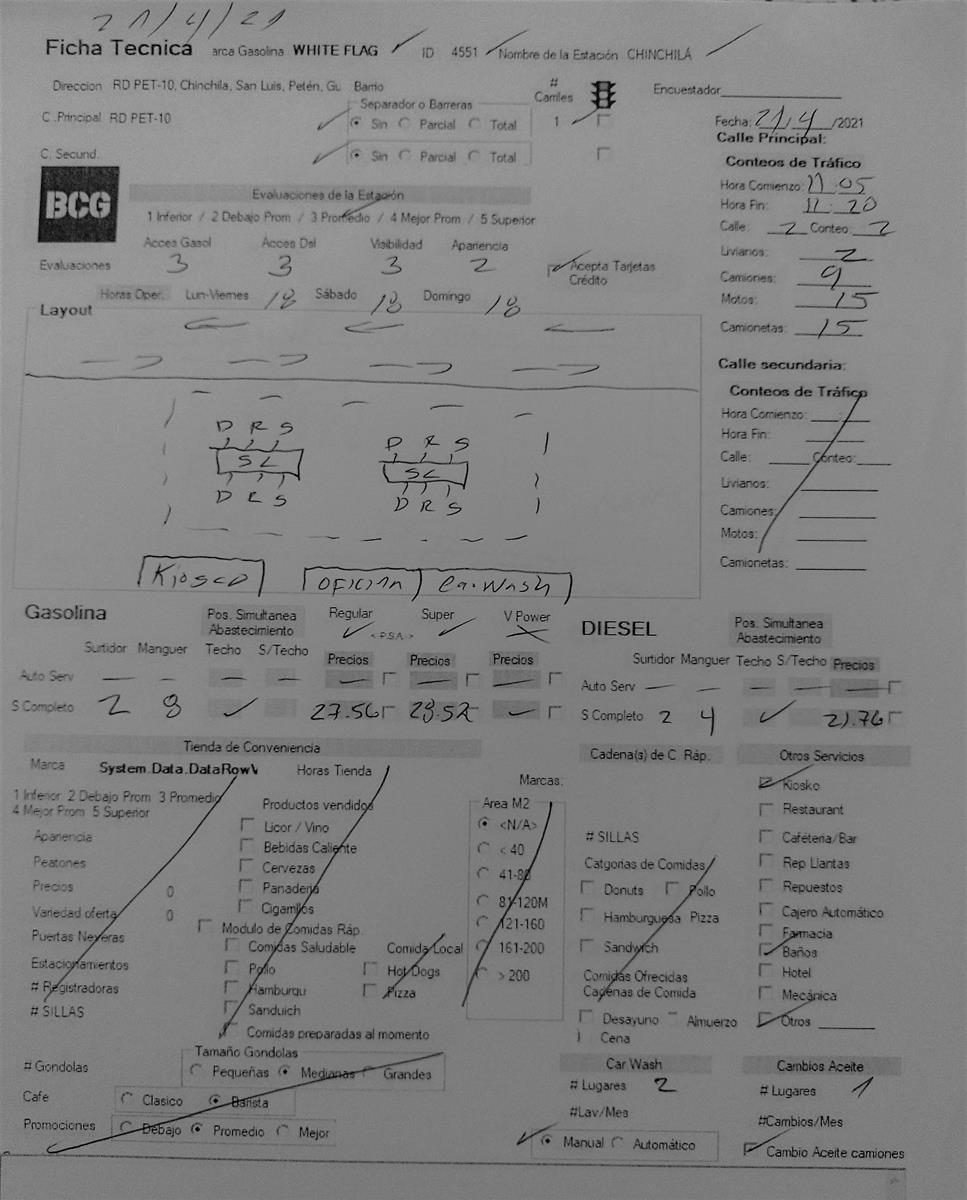 21/4/21
Ficha Tecnica arca Gasolina WHITE FLAG ID 4551 Nombre de la Estación CHINCHILÁ
Direccion RD PET-10, Chinchila, San Luis, Petén, Gu Barrio # Carriles Encuestador
C .Principal RD PET-10 Separador o Barreras Sin Parcial Total 1 Fecha: 21/4/2021
C. Secund. Sin Parcial Total
BCG
Evaluaciones de la Estación
1 Inferior / 2 Debajo Prom / 3 Promedio / 4 Mejor Prom / 5 Superior
Acces Gasol Acces Dsl Visibilidad Apariencia
Evaluaciones 3 3 3 2 Acepta Tarjetas Crédito
Horas Oper. Lun-Viernes 18 Sábado 18 Domingo 18
Calle Principal:
Conteos de Tráfico
Hora Comienzo: 11:05
Hora Fin: 11:20
Calle: 2 Conteo: 2
Livianos: 2
Camiones: 9
Motos: 15
Camionetas: 15
Calle secundaria:
Conteos de Tráfico
Hora Comienzo:
Hora Fin:
Calle: Conteo:
Livianos:
Camiones:
Motos:
Camionetas:
Layout
D R S D R S
SC SC
D R S D R S
Kiosco OFICINA Ca.wash
Gasolina Pos. Simultanea Abastecimiento Regular <P.S.A.> Super V Power
Surtidor Manguer Techo S/Techo Precios Precios Precios
Auto Serv
S Completo 2 8 27.56
DIESEL Pos. Simultanea Abastecimiento
Surtidor Manguer Techo S/Techo Precios
Auto Serv
S Completo 2 4 21.76
Tienda de Conveniencia
Marca System.Data.DataRowV Horas Tienda
1 Inferior 2 Debajo Prom 3 Promedio
4 Mejor Prom 5 Superior
Apariencia
Peatones
Precios 0
Variedad oferta 0
Puertas Neveras
Estacionamientos
# Registradoras
# SILLAS
Productos vendidos
Licor / Vino
Bebidas Caliente
Cervezas
Panaderia
Cigarrillos
Modulo de Comidas Ráp.
Comidas Saludable Comida Local
Pollo Hot Dogs
Hamburgu Pizza
Sanduich
Comidas preparadas al momento
Marcas:
Area M2
<N/A>
< 40
41-80
81-120M
121-160
161-200
> 200
# Gondolas Tamaño Gondolas Pequeñas Medianas Grandes
Cafe Clasico Barista
Promociones Debajo Promedio Mejor
Cadena(s) de C. Ráp.
# SILLAS
Catgorias de Comidas
Donuts Pollo
Hamburguesa Pizza
Sandwich
Comidas Ofrecidas
Cadenas de Comida
Desayuno Almuerzo
Cena
Otros Servicios
Kiosko
Restaurant
Cafétería/Bar
Rep Llantas
Repuestos
Cajero Automático
Farmacia
Baños
Hotel
Mecánica
Otros
Car Wash
# Lugares 2
#Lav/Mes
Manual Automático
Cambios Aceite
# Lugares 1
#Cambios/Mes
Cambio Aceite camiones